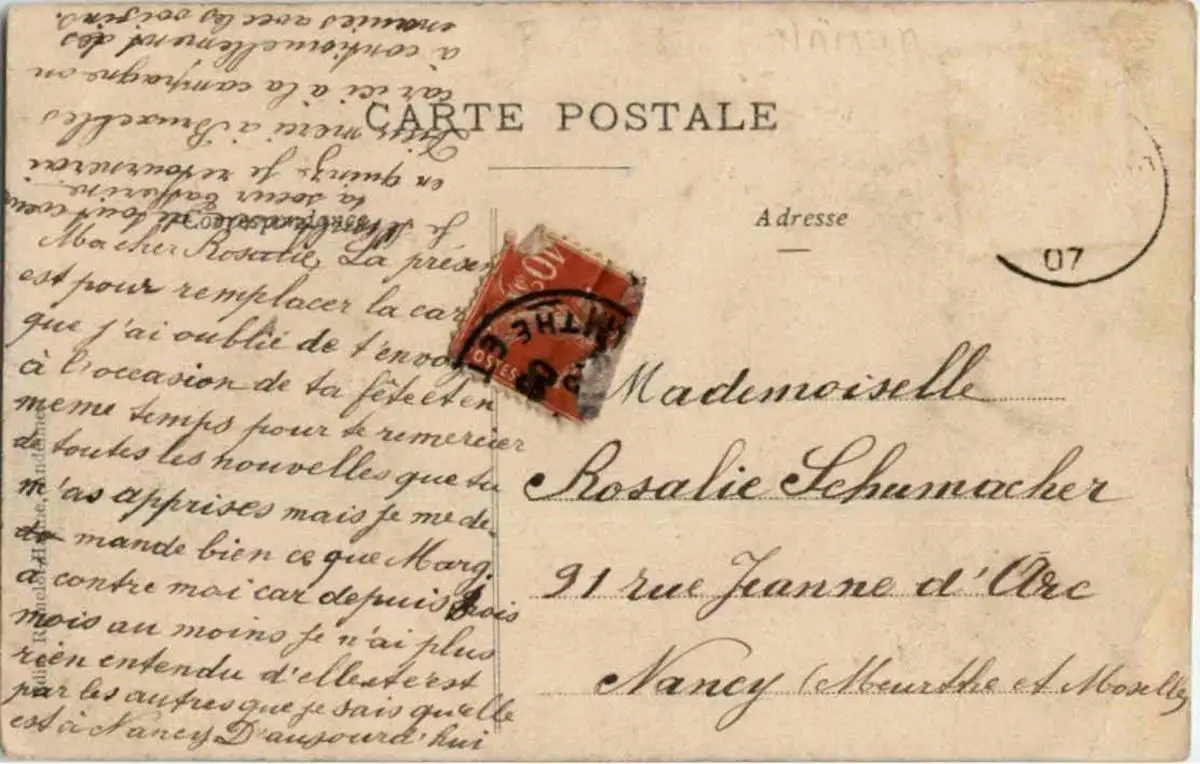 CARTE POSTALE
Correspondance
Adresse
07
10
POSTES
Ma cher Rosalie, La présen
est pour remplacer la car
que j'ai oublié de t'envo
à l'occasion de ta fête et en
meme temps pour te remercier
de toutes les nouvelles que tu
m'as apprises mais je me de
mande bien ce que Marg.
a contre moi car depuis trois
mois au moins je n'ai plus
rien entendu d'elle ce n'est
par les autres que je sais qu'elle
est à Nancy D'aujourd'hui
en quinze je retournerai
Dieu merci à Bruxelles
car ici à la campagne on
a continuellement des
ennuies avec les voisins.
Je t'embrasse de tout coeur
ta soeur Catherine
Mademoiselle
Rosalie Schumacher
91 rue Jeanne d'Arc
Nancy (Meurthe et Moselle